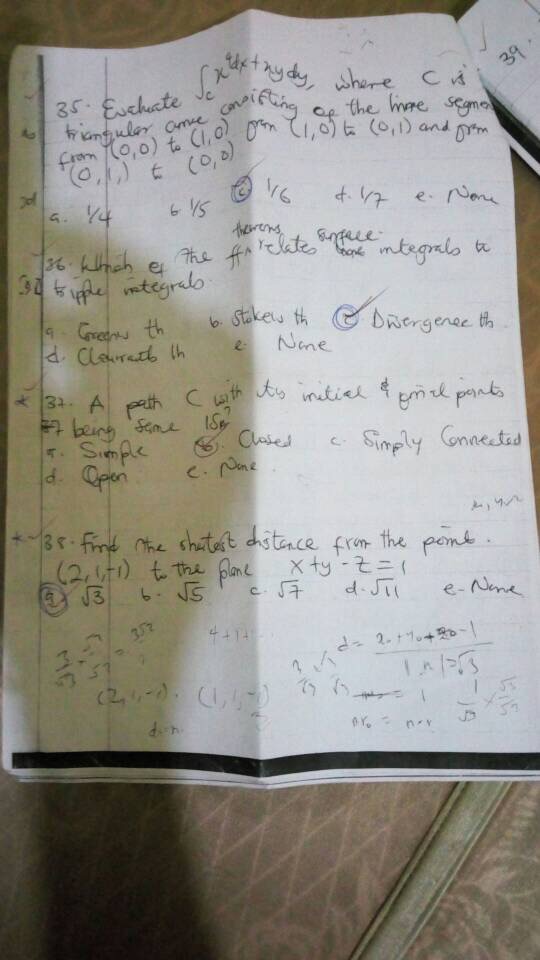 39.
35. Evaluate ∫c x⁴dx + xydy, where C is
triangular curve consisting of the line segmen
from (0,0) to (1,0) from (1,0) to (0,1) and from
(0,1,) to (0,0)
a. 1/4 b. 1/5 c. 1/6 d. 1/7 e. None
36. Which of the ff theorems relates surface integrals to
tripple integrals.
a. Greens th b. Stokes th c. Divergence th.
d. Clairauts th e. None
37. A path C with its initial & final points
being same is?
a. Simple b. Closed c. Simply Connected
d. Open e. None.
38. Find the shortest distance from the point.
(2,1,-1) to the plane x+y-z=1
a. √3 b. √5 c. √7 d. √11 e. None
4+1+
(2,1,-1) . (1,1,-1)
= 1